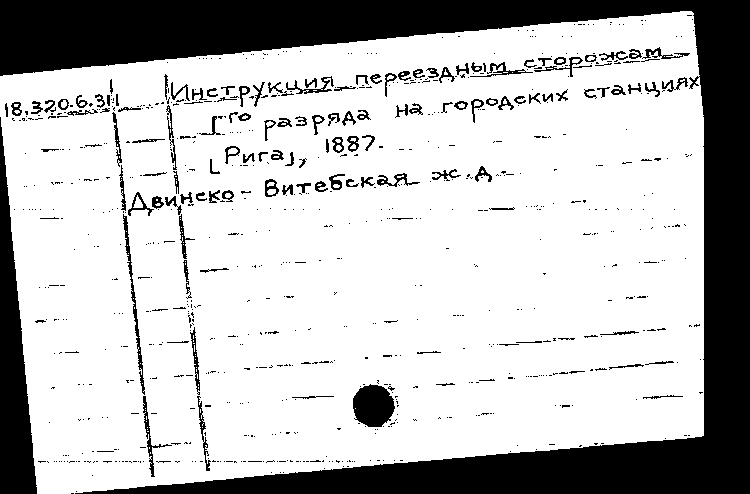 18.320.6.31 Инструкция переездным сторожам
Iго разряда на городских станциях
[Рига], 1887.
Двинско-Витебская ж.д.